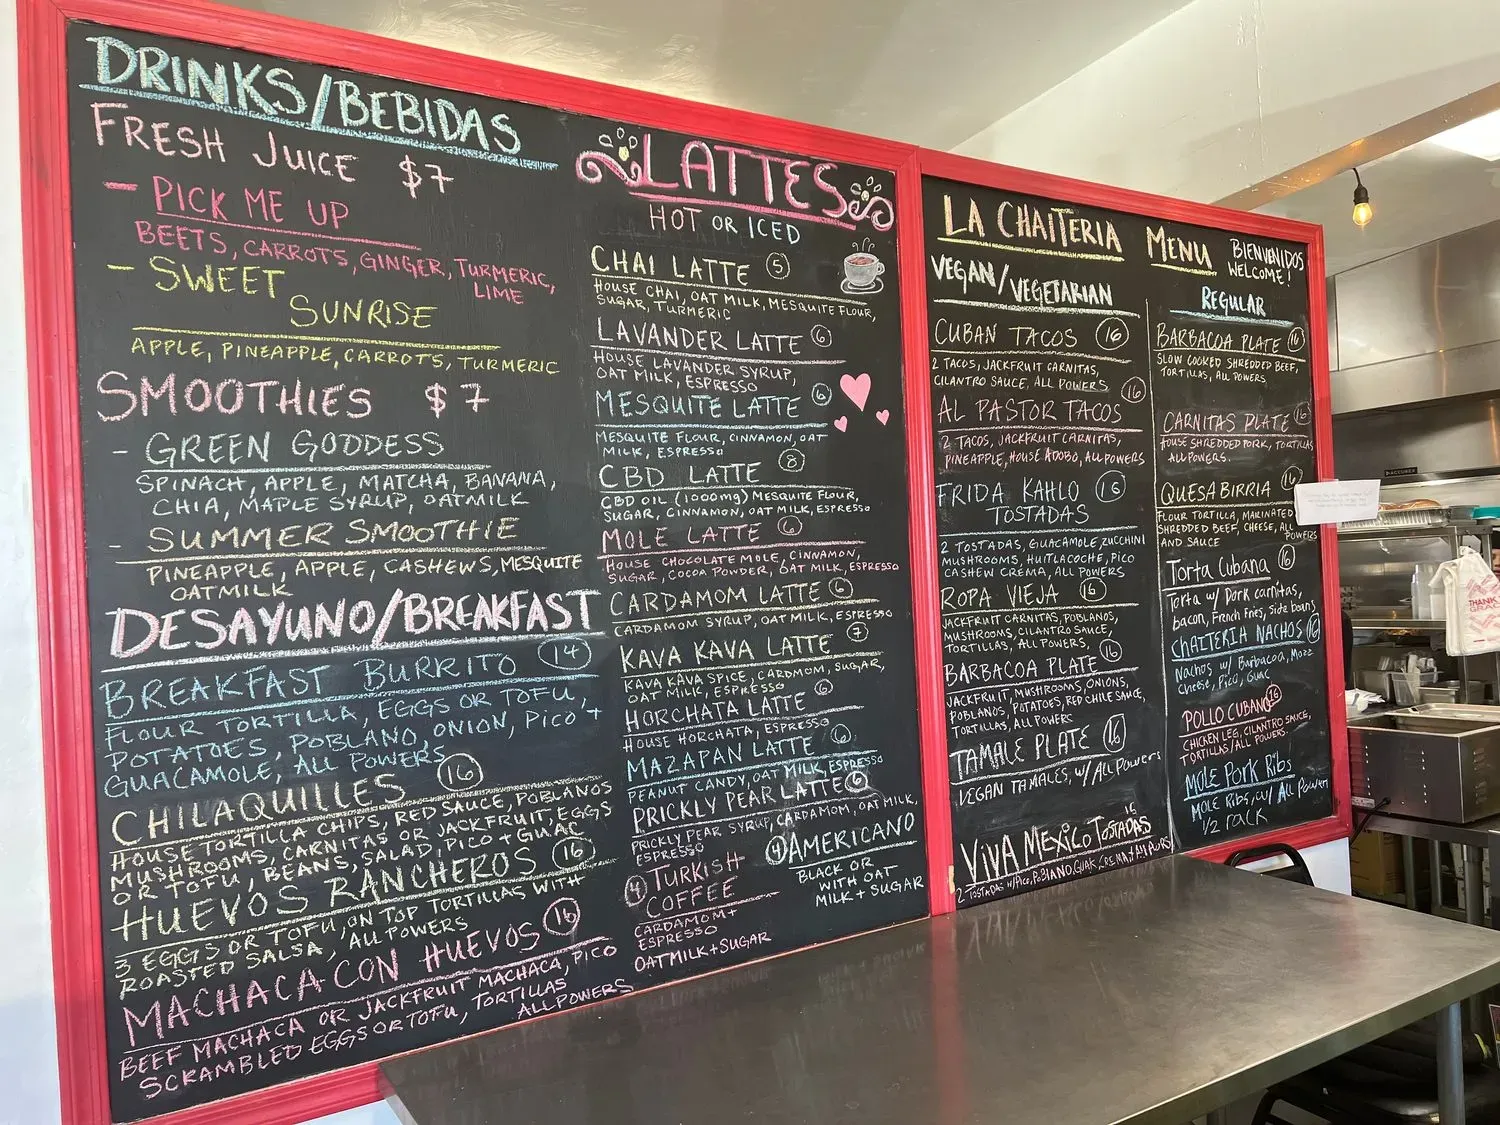 DRINKS/BEBIDAS
FRESH JUICE $7
- PICK ME UP
BEETS, CARROTS, GINGER, TURMERIC,
LIME
- SWEET
SUNRISE
APPLE, PINEAPPLE, CARROTS, TURMERIC
SMOOTHIES $7
- GREEN GODDESS
SPINACH, APPLE, MATCHA, BANANA,
CHIA, MAPLE SYRUP, OATMILK
- SUMMER SMOOTHIE
PINEAPPLE, APPLE, CASHEWS, MESQUITE
OATMILK
DESAYUNO/BREAKFAST
BREAKFAST BURRITO 14
FLOUR TORTILLA, EGGS OR TOFU,
POTATOES, POBLANO, ONION, PICO +
GUACAMOLE, ALL POWERS
CHILAQUILLES 16
HOUSE TORTILLA CHIPS, RED SAUCE, POBLANOS
MUSHROOMS, CARNITAS OR JACKFRUIT, EGGS
OR TOFU, BEANS, SALAD, PICO + GUAC
HUEVOS RANCHEROS 16
3 EGGS OR TOFU, ON TOP TORTILLAS WITH
ROASTED SALSA, ALL POWERS
MACHACA CON HUEVOS 16
BEEF MACHACA OR JACKFRUIT MACHACA, PICO
SCRAMBLED EGGS OR TOFU, TORTILLAS
ALL POWERS
LATTES
HOT OR ICED
CHAI LATTE 5
HOUSE CHAI, OAT MILK, MESQUITE FLOUR,
SUGAR, TURMERIC
LAVANDER LATTE 6
HOUSE LAVANDER SYRUP,
OAT MILK, ESPRESSO
MESQUITE LATTE 6
MESQUITE FLOUR, CINNAMON, OAT
MILK, ESPRESSO
CBD LATTE 8
CBD OIL (1000mg) MESQUITE FLOUR,
SUGAR, CINNAMON, OAT MILK, ESPRESSO
MOLE LATTE 6
HOUSE CHOCOLATE MOLE, CINNAMON,
SUGAR, COCOA POWDER, OAT MILK, ESPRESSO
CARDAMOM LATTE 6
CARDAMOM SYRUP, OAT MILK, ESPRESSO
KAVA KAVA LATTE 7
KAVA KAVA SPICE, CARDMOM, SUGAR,
OAT MILK, ESPRESSO
HORCHATA LATTE 6
HOUSE HORCHATA, ESPRESSO
MAZAPAN LATTE 6
PEANUT CANDY, OAT MILK, ESPRESSO
PRICKLY PEAR LATTE 6
PRICKLY PEAR SYRUP, CARDAMOM, OAT MILK,
ESPRESSO
4 TURKISH
COFFEE
CARDAMOM +
ESPRESSO
OATMILK + SUGAR
4 AMERICANO
BLACK OR
WITH OAT
MILK + SUGAR
LA CHAITERIA MENU BIENVENIDOS
WELCOME!
VEGAN/VEGETARIAN
CUBAN TACOS 16
2 TACOS, JACKFRUIT CARNITAS,
CILANTRO SAUCE, ALL POWERS
AL PASTOR TACOS 16
2 TACOS, JACKFRUIT CARNITAS,
PINEAPPLE, HOUSE ADOBO, ALL POWERS
FRIDA KAHLO 16
TOSTADAS
2 TOSTADAS, GUACAMOLE, ZUCCHINI
MUSHROOMS, HUITLACOCHE, PICO
CASHEW CREMA, ALL POWERS
ROPA VIEJA 16
JACKFRUIT CARNITAS, POBLANOS,
MUSHROOMS, CILANTRO SAUCE,
TORTILLAS, ALL POWERS,
BARBACOA PLATE 16
JACKFRUIT, MUSHROOMS, ONIONS,
POBLANOS, POTATOES, RED CHILE SAUCE,
TORTILLAS, ALL POWERS
TAMALE PLATE 16
VEGAN TAMALES, W/ ALL POWERS
VIVA MEXICO TOSTADAS 16
2 TOSTADAS W/ PICO, POBLANO, GUAC,
REGULAR
BARBACOA PLATE 16
SLOW COOKED SHREDDED BEEF,
TORTILLAS, ALL POWERS
CARNITAS PLATE 16
HOUSE SHREDDED PORK, TORTILLAS
ALL POWERS.
QUESABIRRIA 16
FLOUR TORTILLA, MARINATED
SHREDDED BEEF, CHEESE, ALL
AND SAUCE POWERS
Torta Cubana 16
Torta w/ Pork carnitas,
bacon, French fries, side beans
CHAITERIA NACHOS 16
Nachos w/ Barbacoa, Mozz
cheese, Pico, Guac
POLLO CUBANO 16
CHICKEN LEG, CILANTRO SAUCE,
TORTILLAS/ALL POWERS.
MOLE PORK RIBS
MOLE RIBS, W/ ALL POWERS
1/2 rack
THANK